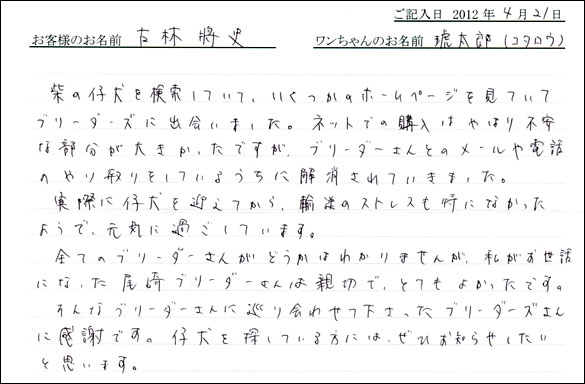 ご記入日 2012年4月21日
お客様のお名前 古林 将史 ワンちゃんのお名前 琥太郎(コタロウ)
柴の仔犬を検索していて、いくつかのホームページを見ていて
ブリーダーズに出会いました。ネットでの購入はやはり不安
な部分が大きかったですが、ブリーダーさんとのメールや電話
のやり取りをしているうちに解消されていきました。
実際に仔犬を迎えてから、輸送のストレスも特になかった
ようで、元気に過ごしています。
全てのブリーダーさんがどうかはわかりませんが、私がお世話
になった尾崎ブリーダーさんは親切で、とてもよかったです。
そんなブリーダーさんに巡り合わせて下さったブリーダーズさん
に感謝です。仔犬を探している方には、ぜひお知らせしたい
と思います。